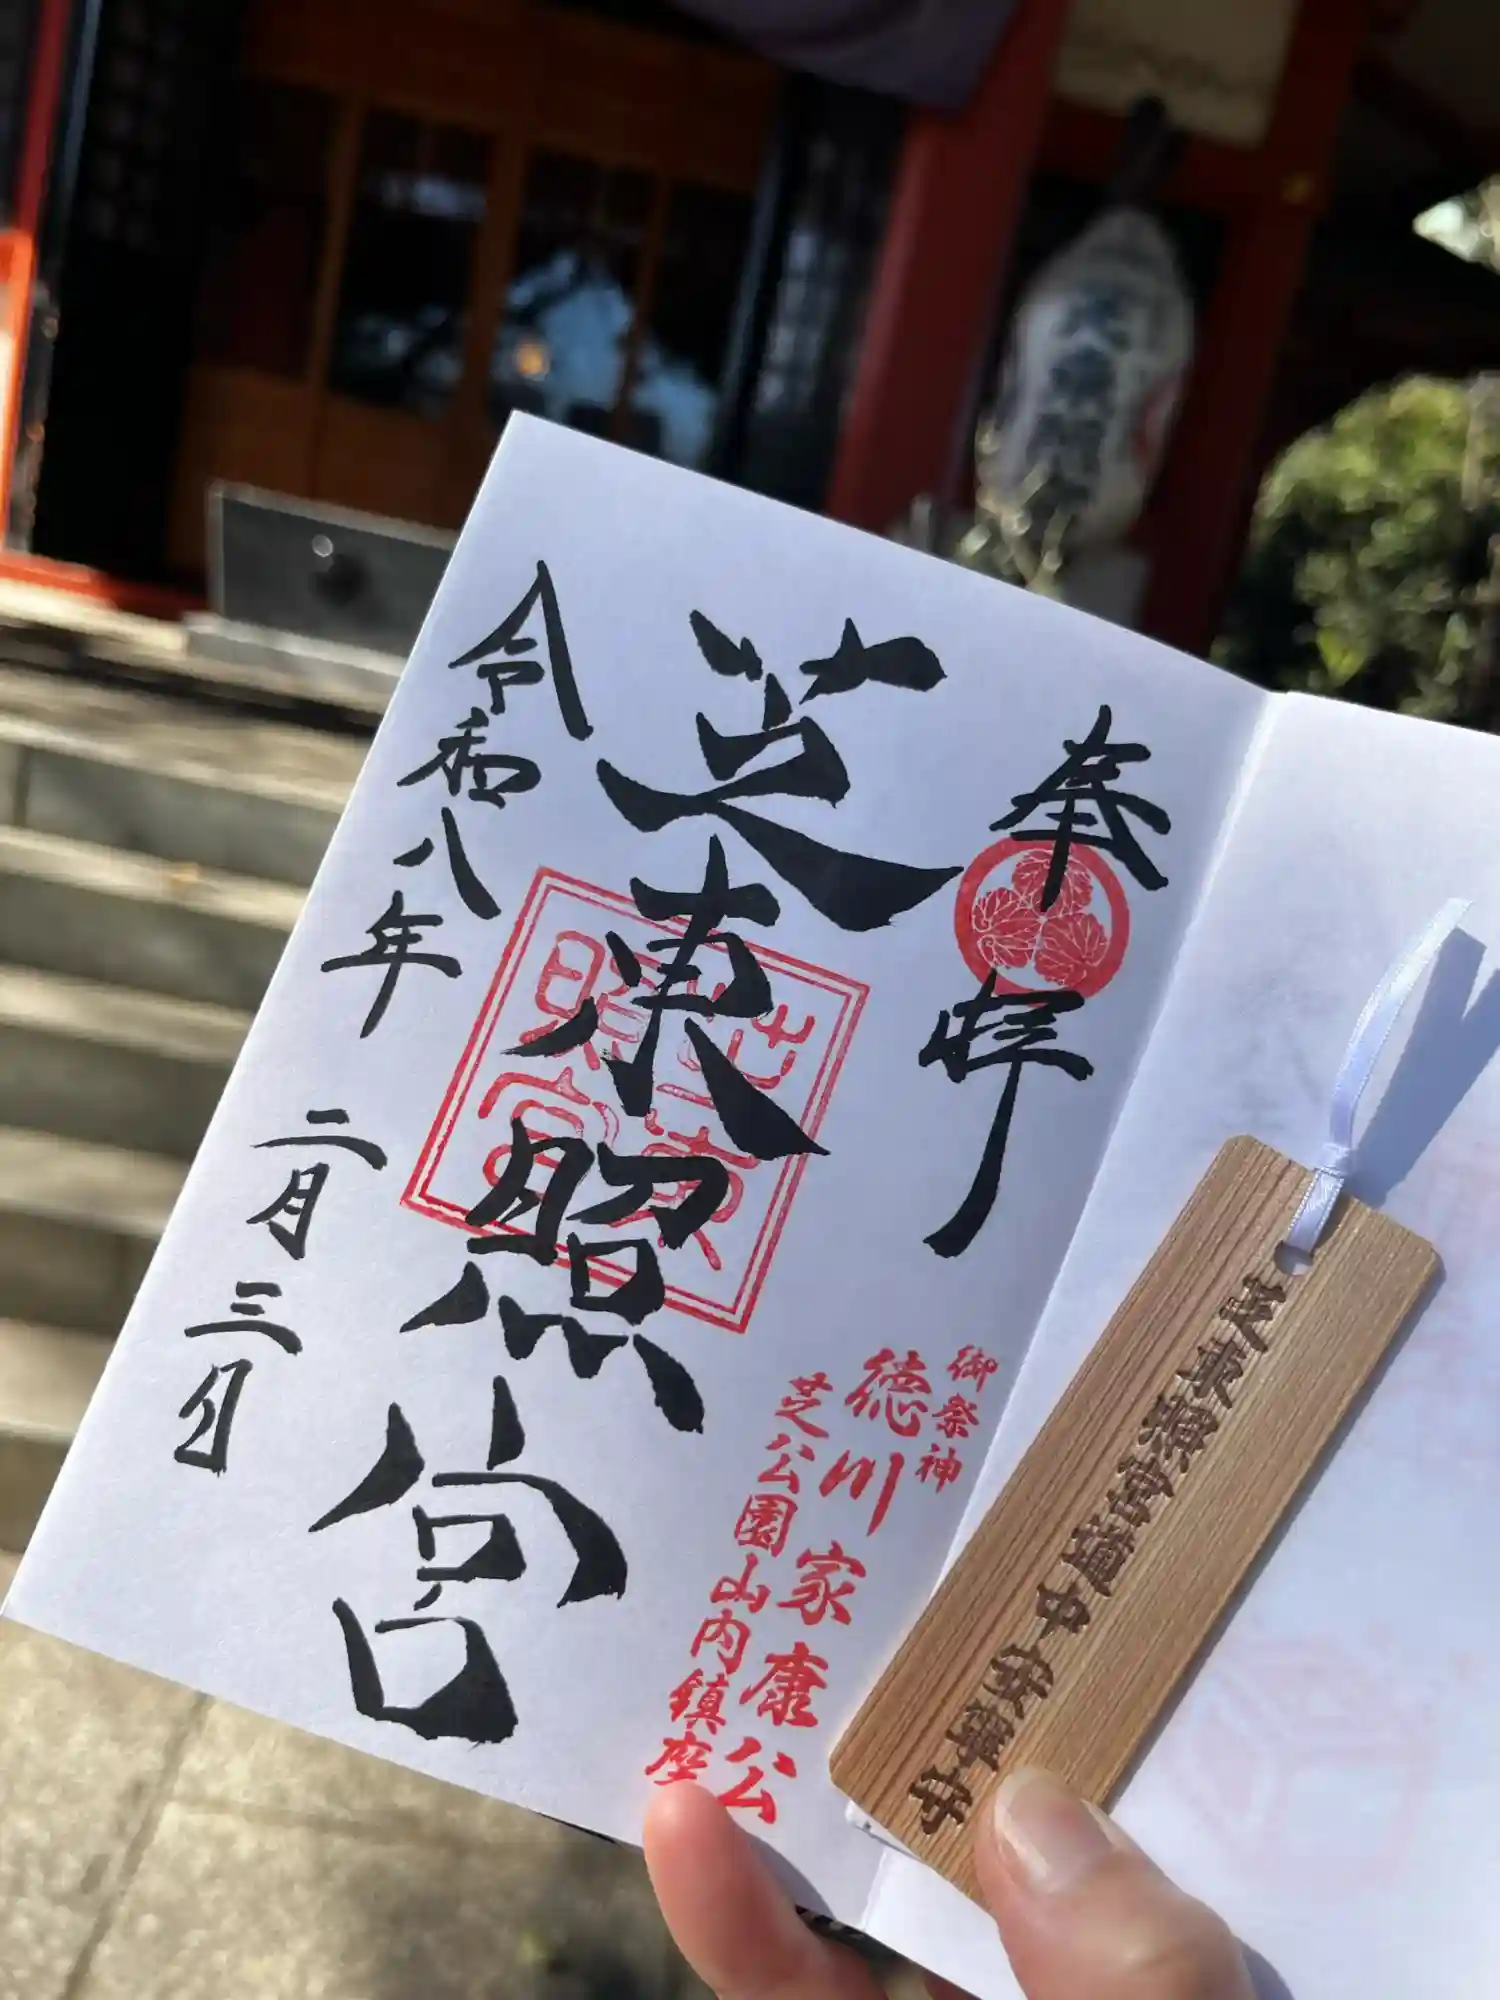 奉拝
芝東照宮
令和八年
二月三日
芝東照宮
御祭神
徳川家康公
芝公園山内鎮座
芝東照宮道中安寧守